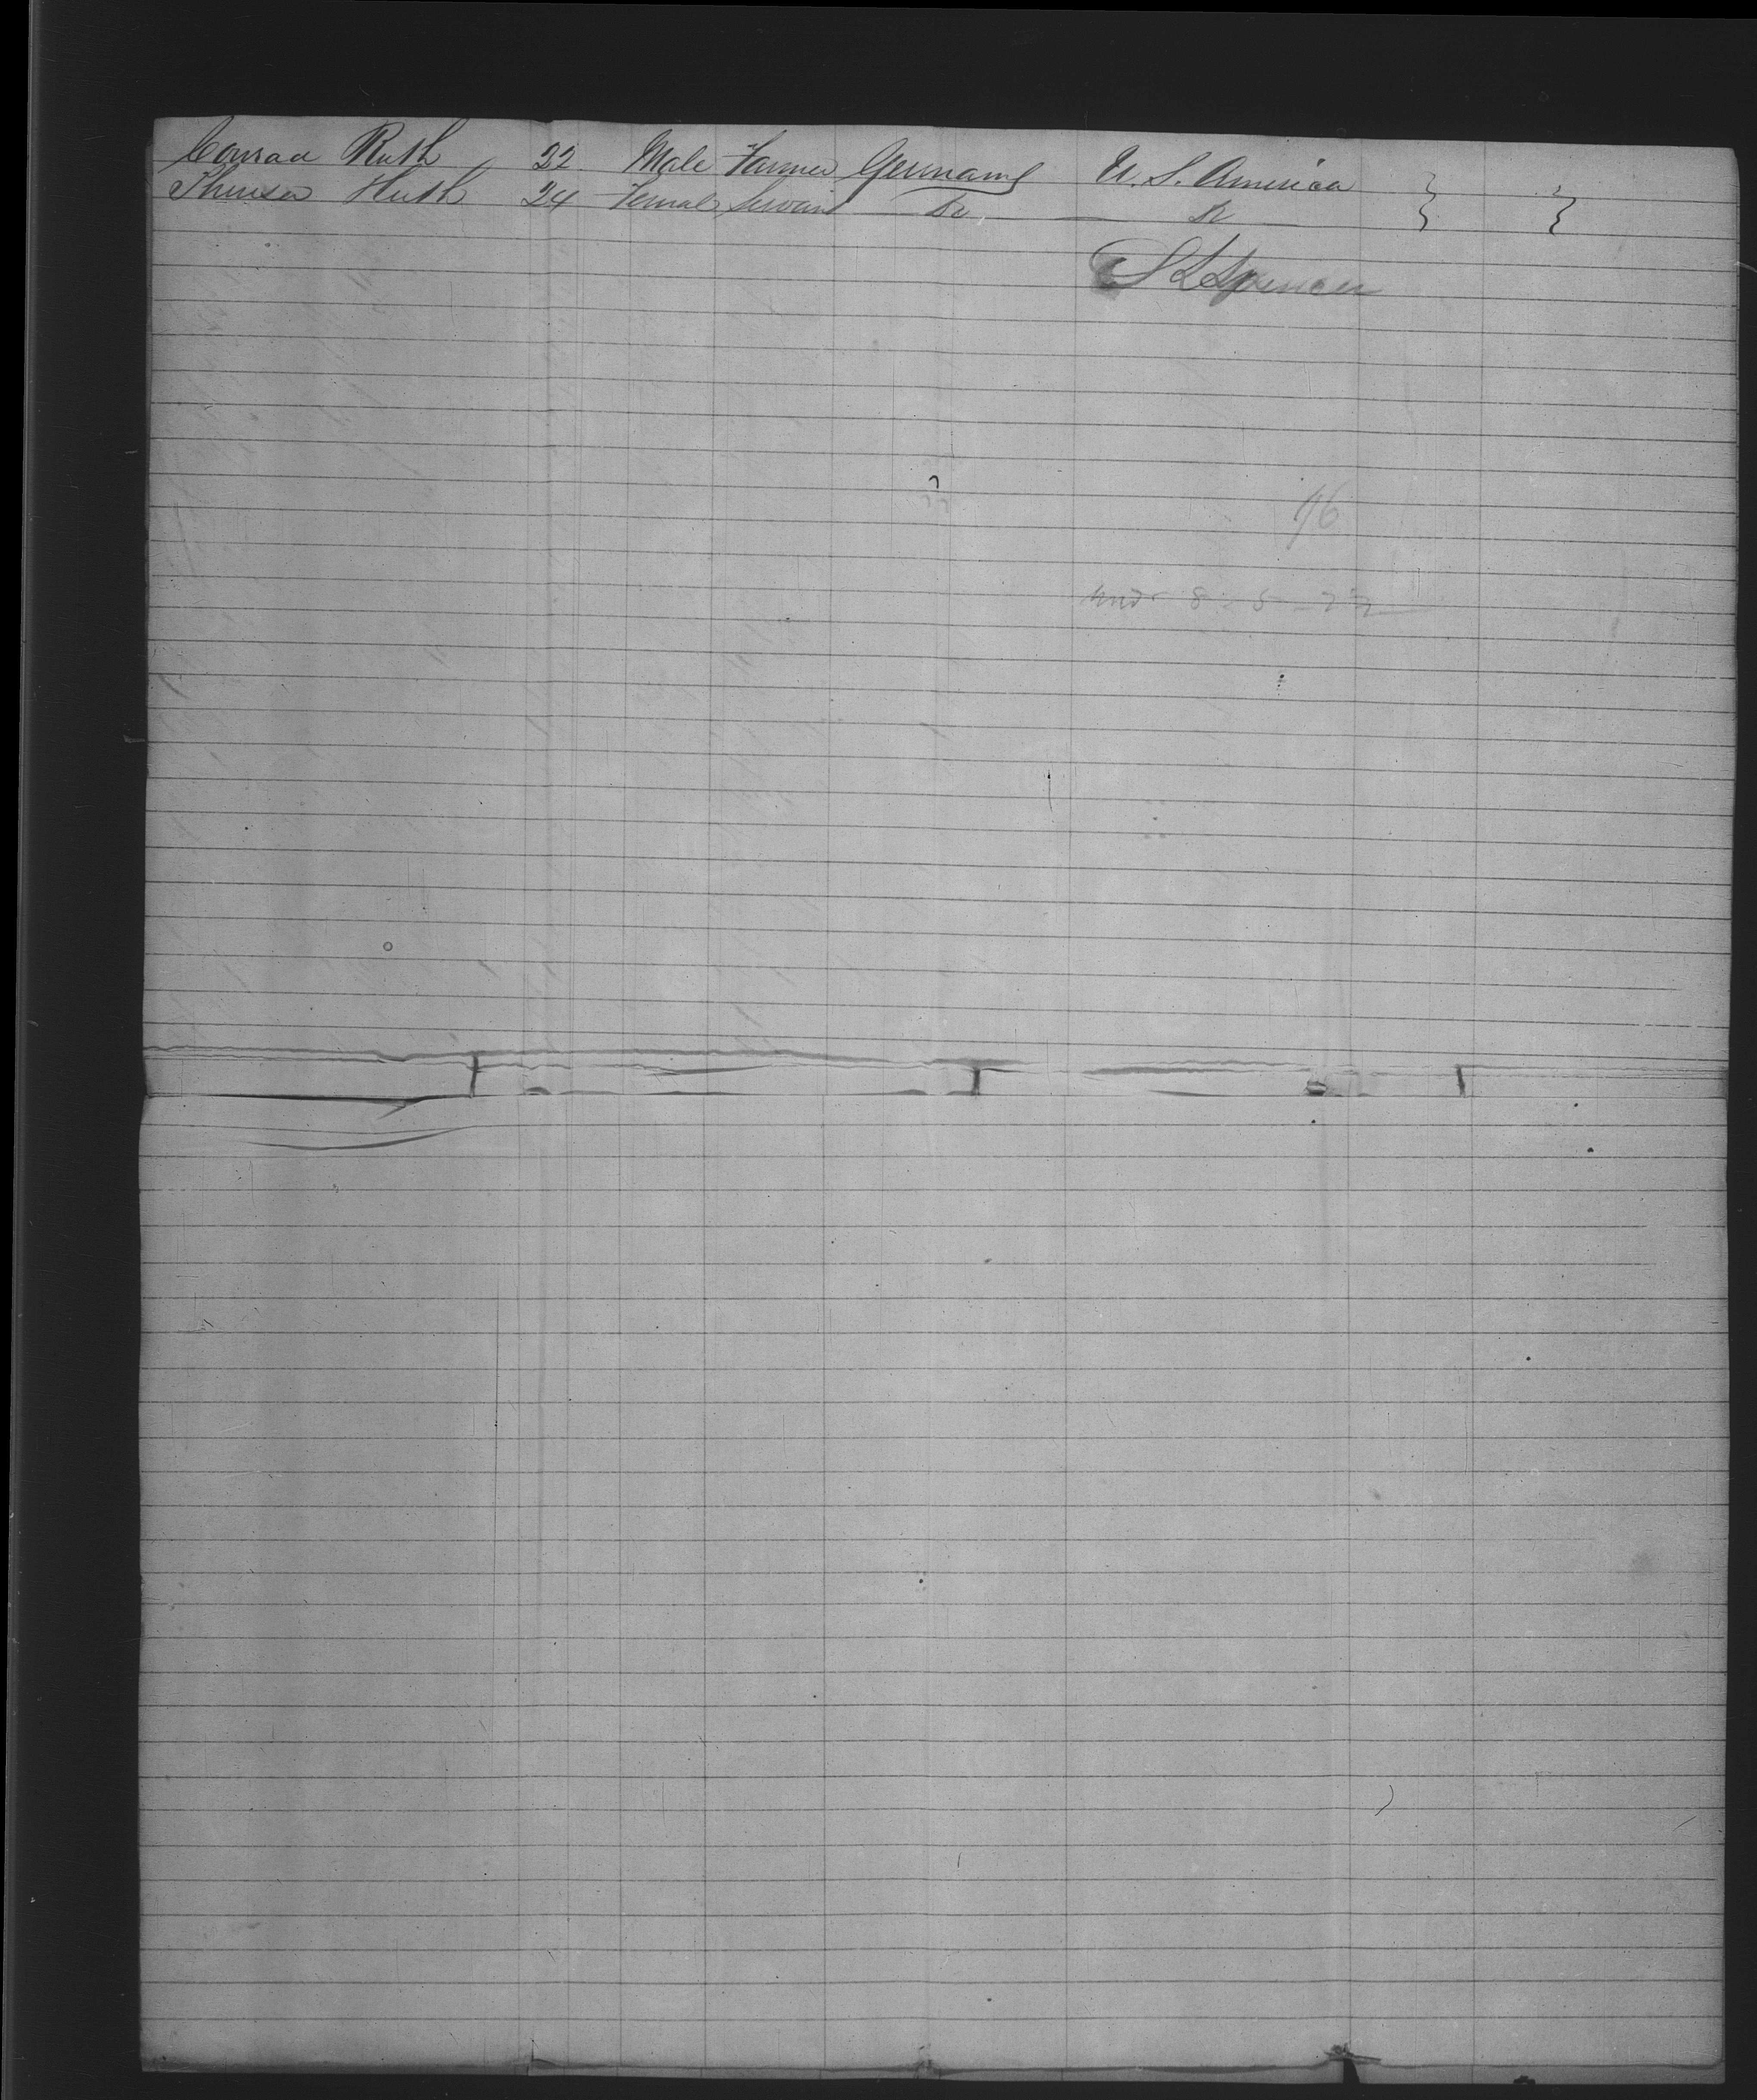 Conrad Ruth 22 Male Farmer Germany U. S. America } }
Theresa Huth 24 Female Servant Do Do
S L Spencer
16
8 - 5 - 22